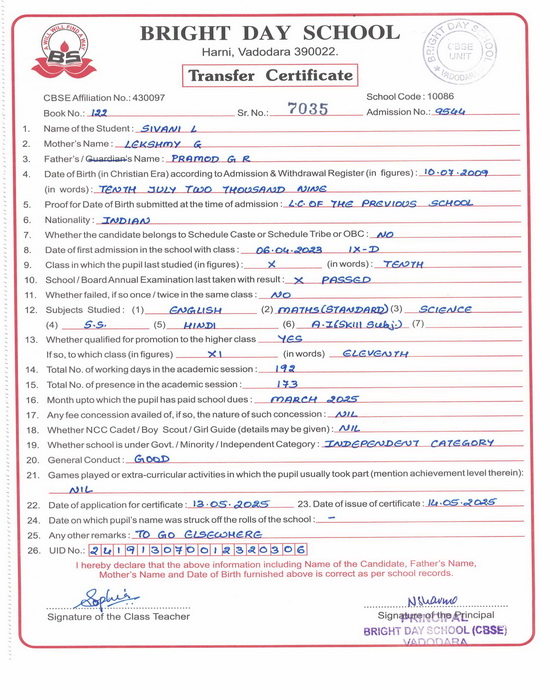 A WILL WILL FIND A WAY
BS
BRIGHT DAY SCHOOL
Harni, Vadodara 390022.
Transfer Certificate
BRIGHT DAY SCHOOL
CBSE
UNIT
VADODARA
CBSE Affiliation No.: 430097 School Code : 10086
Book No.: 122 Sr. No.: 7035 Admission No.: 9544
1. Name of the Student : SIVANI L
2. Mother's Name : LEKSHMY G
3. Father's / Guardian's Name : PRAMOD G R
4. Date of Birth (in Christian Era) according to Admission & Withdrawal Register (in figures) : 10.07.2009
(in words) : TENTH JULY TWO THOUSAND NINE
5. Proof for Date of Birth submitted at the time of admission : L.C OF THE PREVIOUS SCHOOL
6. Nationality : INDIAN
7. Whether the candidate belongs to Schedule Caste or Schedule Tribe or OBC : NO
8. Date of first admission in the school with class : 06.04.2023 IX-D
9. Class in which the pupil last studied (in figures) : X (in words) : TENTH
10. School / Board Annual Examination last taken with result : X PASSED
11. Whether failed, if so once / twice in the same class : NO
12. Subjects Studied : (1) ENGLISH (2) MATHS(STANDARD) (3) SCIENCE
(4) S.S. (5) HINDI (6) A.I(Skill Subj.) (7)
13. Whether qualified for promotion to the higher class YES
If so, to which class (in figures) XI (in words) ELEVENTH
14. Total No. of working days in the academic session : 192
15. Total No. of presence in the academic session : 173
16. Month upto which the pupil has paid school dues : MARCH 2025
17. Any fee concession availed of, if so, the nature of such concession : NIL
18. Whether NCC Cadet / Boy Scout / Girl Guide (details may be given) : NIL
19. Whether school is under Govt. / Minority / Independent Category : INDEPENDENT CATEGORY
20. General Conduct : GOOD
21. Games played or extra-curricular activities in which the pupil usually took part (mention achievement level therein):
NIL
22. Date of application for certificate : 13.05.2025 23. Date of issue of certificate : 14.05.2025
24. Date on which pupil's name was struck off the rolls of the school : –
25. Any other remarks : TO GO ELSEWHERE
26. UID No.: 241913070012320306
I hereby declare that the above information including Name of the Candidate, Father's Name,
Mother's Name and Date of Birth furnished above is correct as per school records.
Signature of the Class Teacher Signature of the Principal
PRINCIPAL
BRIGHT DAY SCHOOL (CBSE)
VADODARA